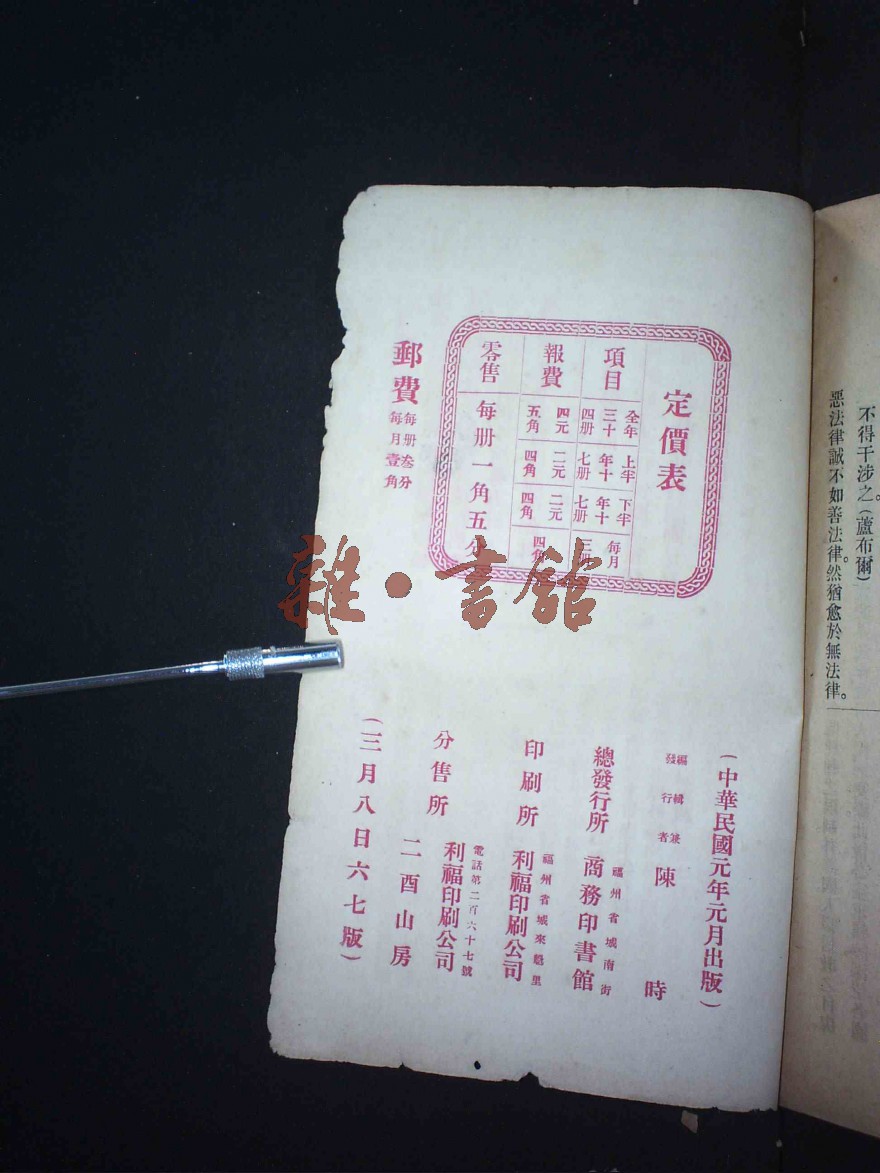 不得干涉之。(蘆布爾)
惡法律誠不如善法律。然猶愈於無法律。
定價表
項目 全年三十四册 上半年十七册 下半年十七册 每月三册
報費 四元五角 二元四角 二元四角 四角
零售 每册一角五分
郵費 每册叁分 每月壹角
(中華民國元年元月出版)
編輯兼發行者 陳 時
總發行所 福州省城南街 商務印書館
印刷所 福州省城來魁里 利福印刷公司
分售所 電話第二百六十七號 利福印刷公司
二酉山房
(三月八日六七版)
雜·書館